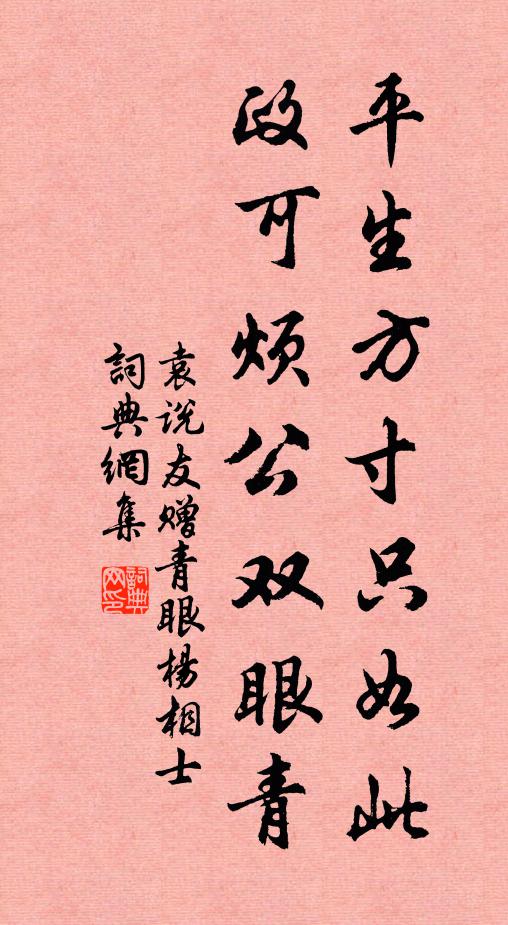 平生方寸只如此
政可烦公双眼青
袁说友赠青眼杨相士
詞典網集
詞典
网印